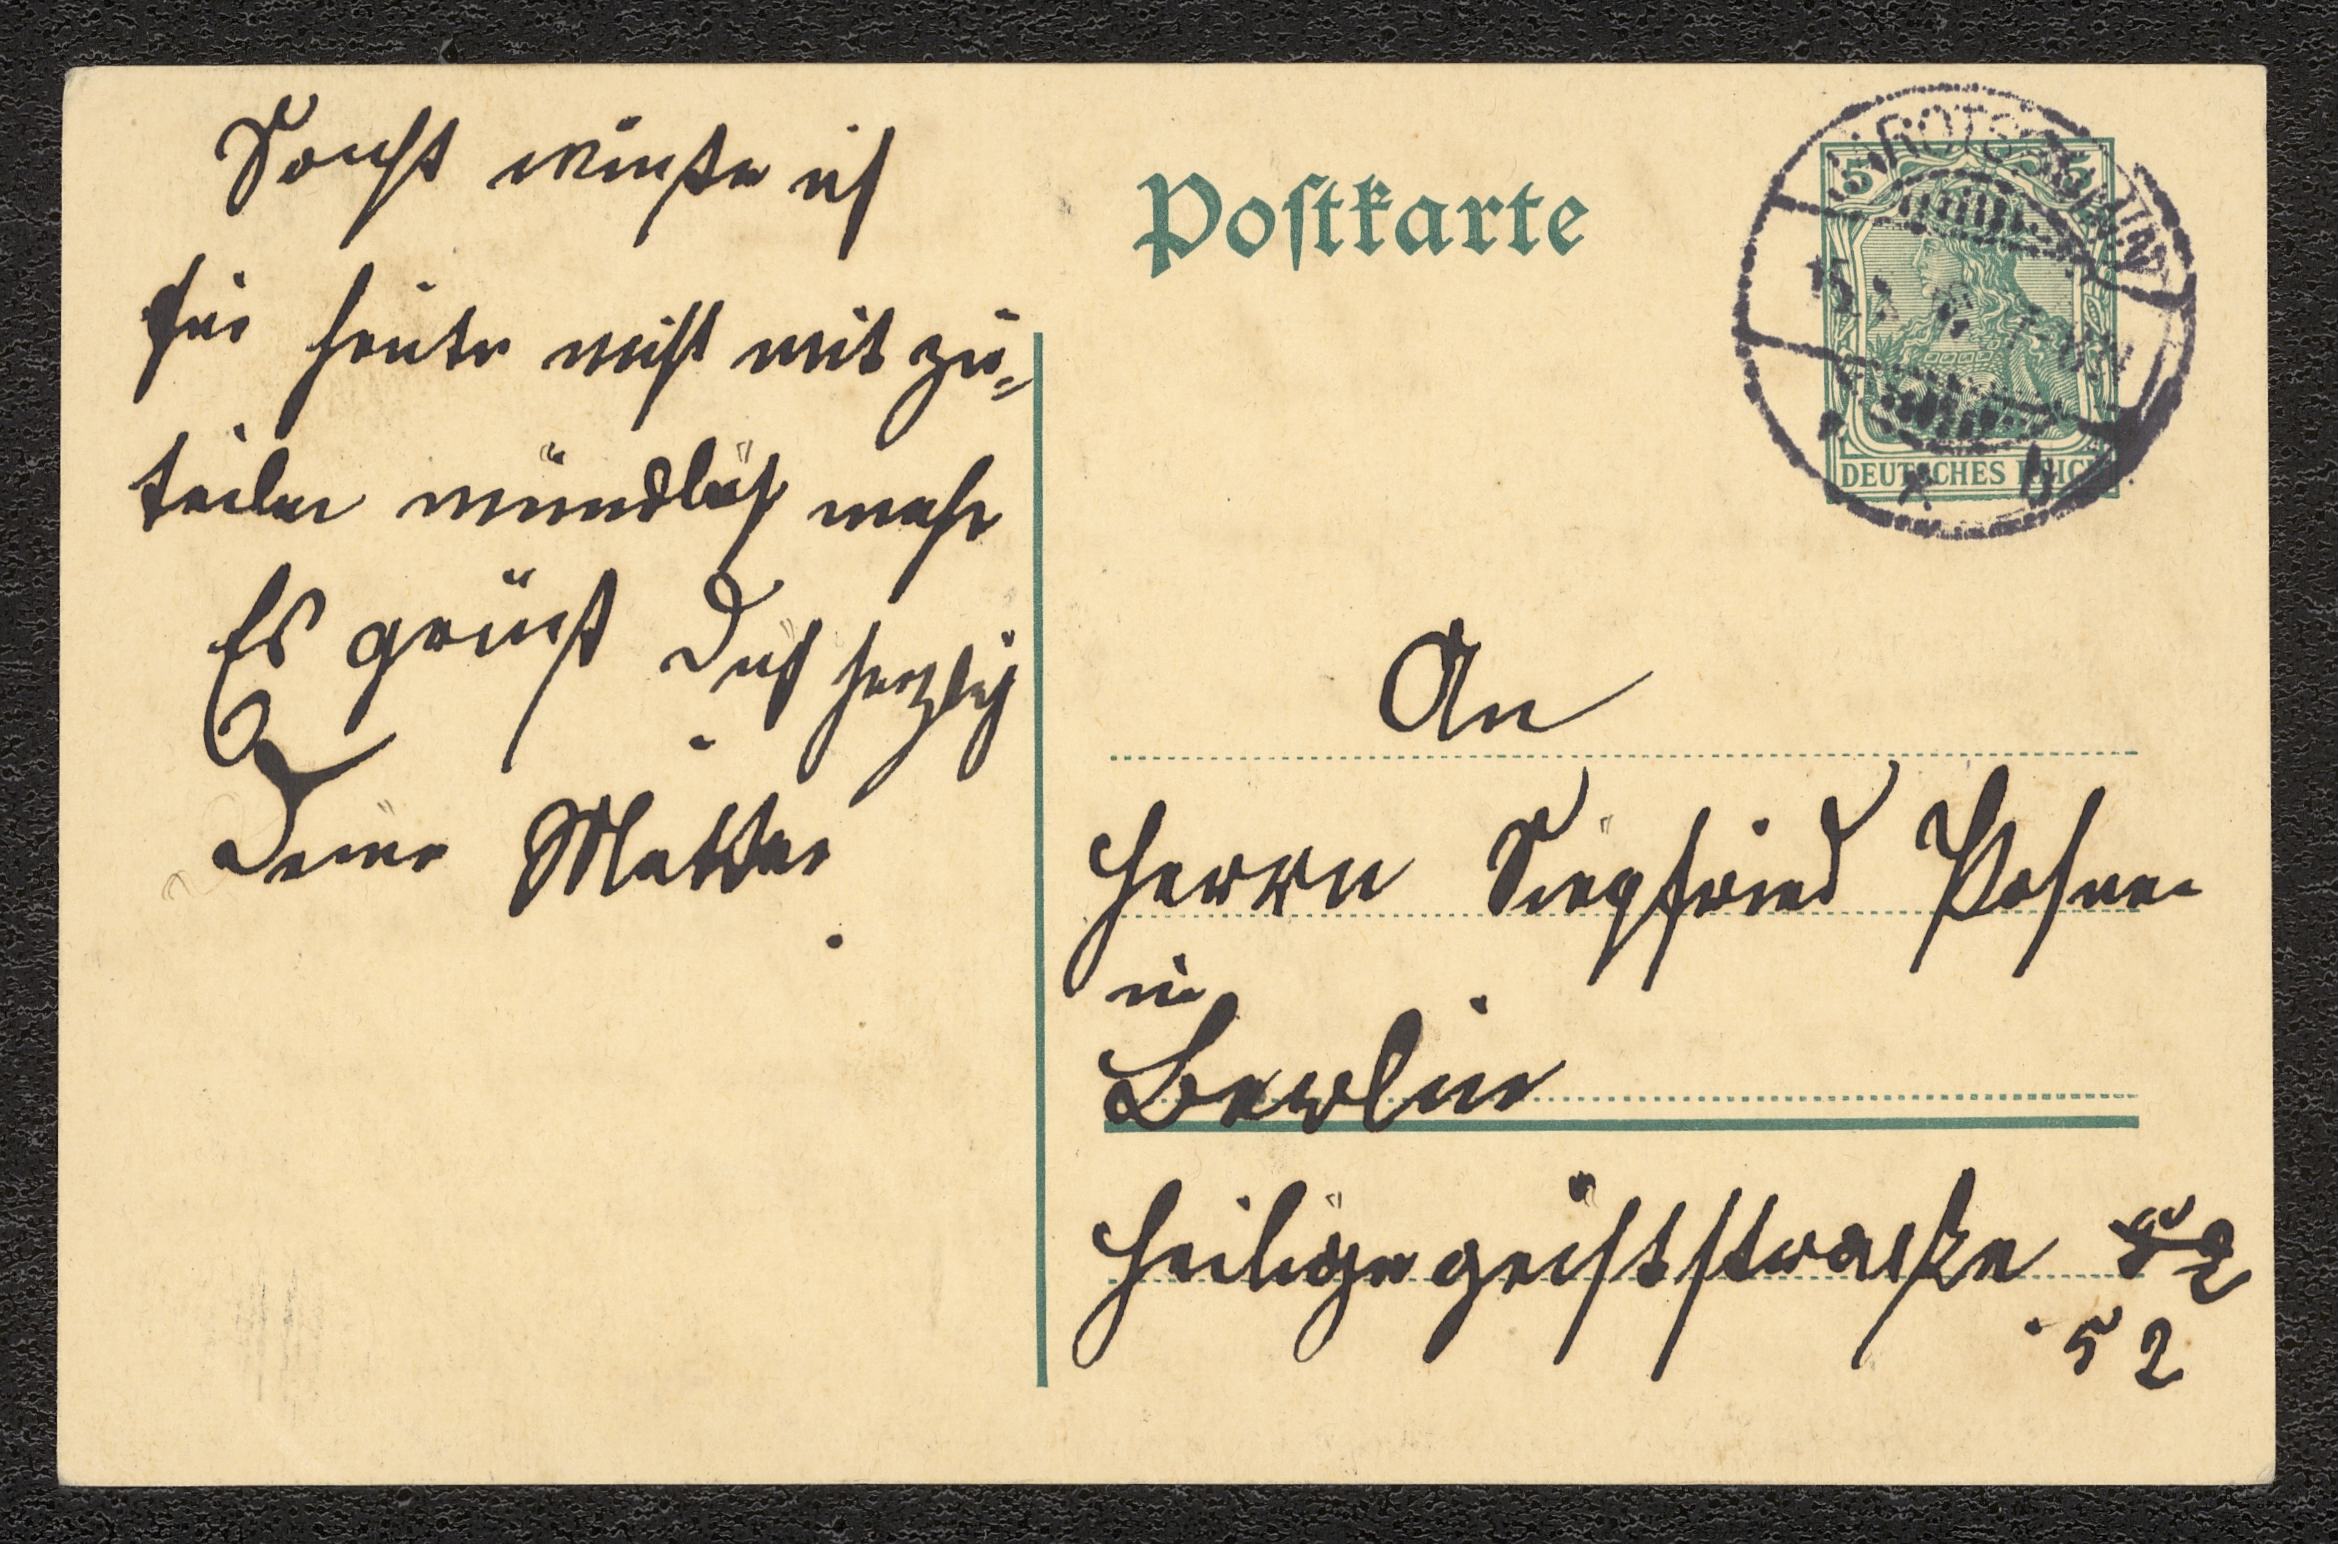 Sonst wüßte ich
für heute nicht mit zu=
teilen mündlich mehr
Es grüßt Dich herzlich
Deine Mutter
Postkarte
KROTOSCHIN
5 5
DEUTSCHES REICH
An
Herrn Siegfried Posner
in
Berlin
Heiligegeiststraße 52
52